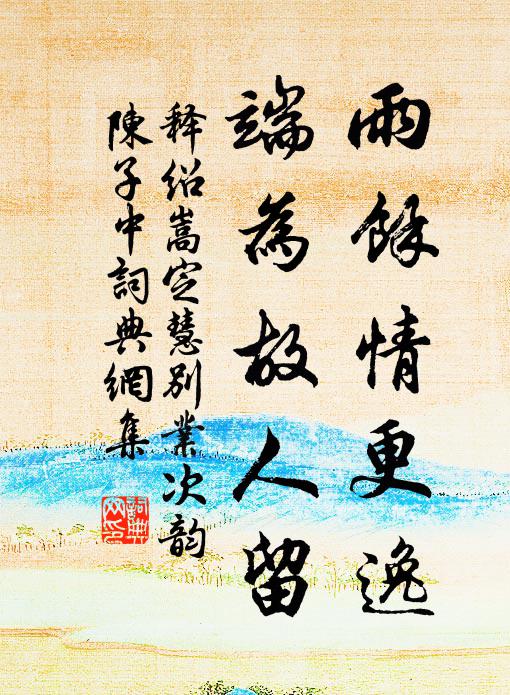 雨餘情更逸
端為故人留
释绍嵩定慧别業次韵
陳子中詞典網集
詞典网印